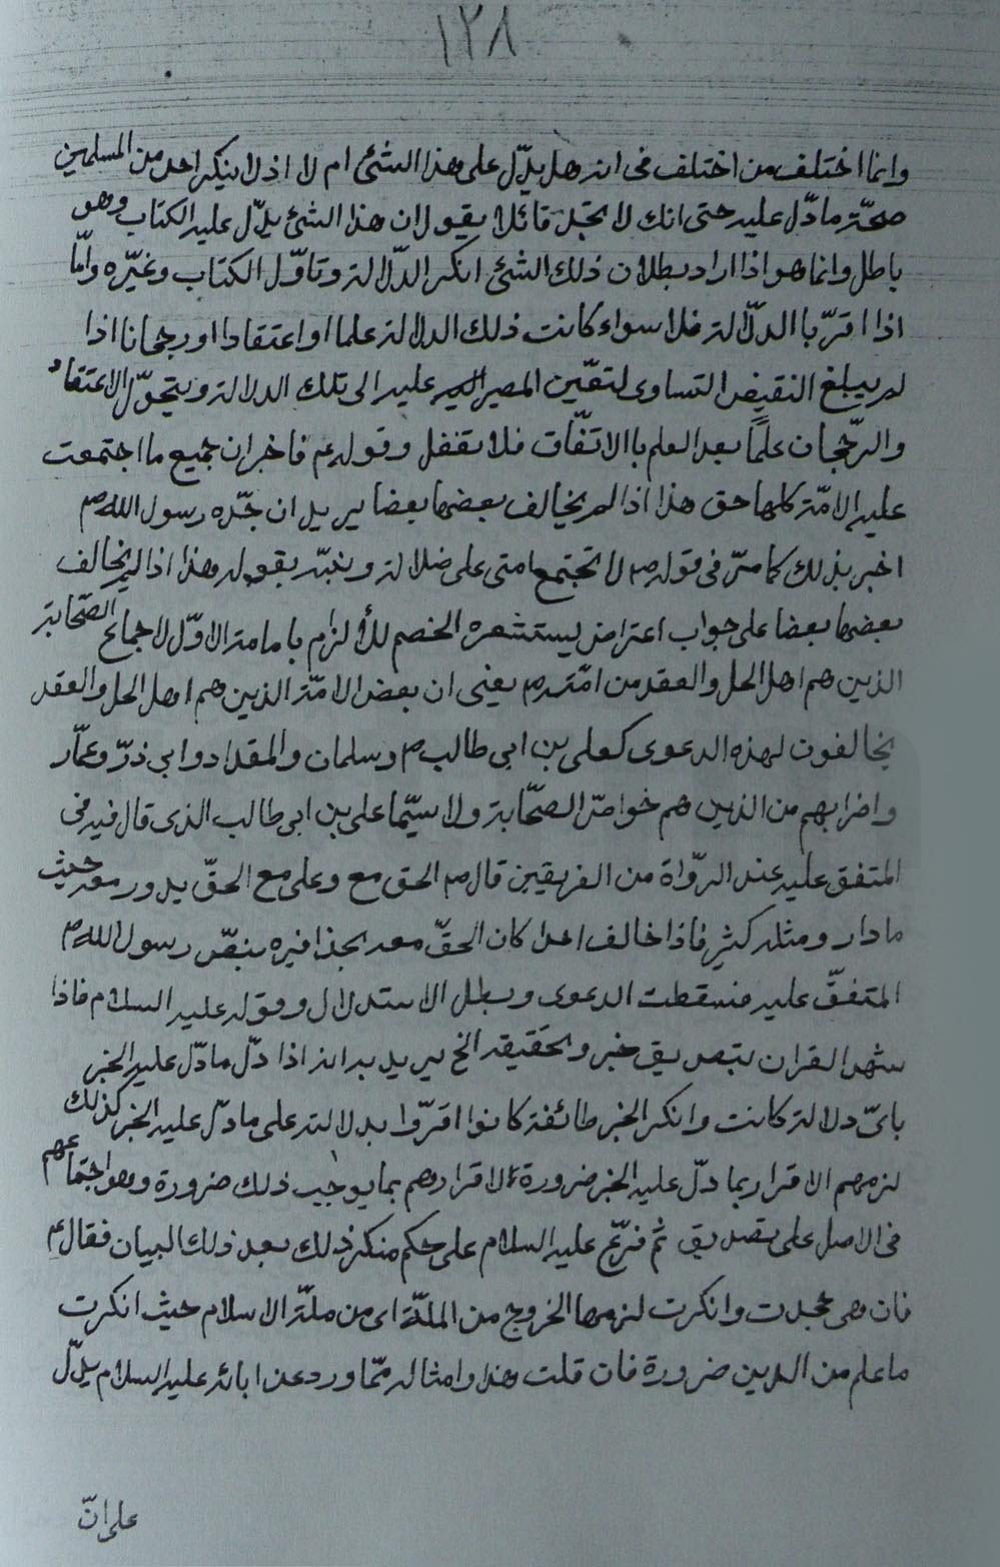 ١٢٨
وانما اختلف من اختلف فى انه هل يدّل على هذا الشئ ام لا اذ لا ينكر احد من المسلمين
صحّة ما دّل عليه حتى انك لا تجد قائلا يقول ان هذا الشئ يدّل عليه الكتاب وهو
باطل وانما هو اذا اراد بطلان ذلك الشئ انكر الدّلالة وتاوّل الكتاب وغيّره وامّا
اذا اقرّ با الدلّالة فلا سواء كانت ذلك الدلالة علما او اعتقادا او رجحانا اذا
لم يبلغ النقيض التساوى لتعّين المصير عليه الى تلك الدلالة ويتحوّل الاعتقاد
والرّجحان علمًا بعد العلم با الاتّفاق فلا تغفل وقوله ع فاخبر ان جميع ما اجتمعت
عليه الامّة كلها حق هذا اذا لم يخالف بعضها بعضا يريد ان جّده رسول الله ص
اخبر بذلك كما مرّ فى قوله ص لا تجتمع امتى على ضلالة ونبّه بقوله وهذا اذا لم يخالف
بعضها بعضا على جواب اعتراض يستشعره الخصم للألزام بامامة الاوّل لاجماع الصّحابة
الذين هم اهل الحل والعقد من امّته ص يعنى ان بعض الامّة الذين هم اهل الحل والعقد
يخالفون لهذه الدعوى كعلى بن ابى طالب ع وسلمان والمقداد وابى ذرّ وعمّار
واضرابهم من الذين هم خواصّ الصّحابة ولا سيّما على بن ابى طالب الذى قال فيه فى
المتفق عليه عند الرّواة من الفريقين قال ص الحق مع وعلى مع الحقّ يدور معه حيث
ما دار ومثله كثير فاذا خالف احدا كان الحقّ معه بحذافيره بنصّ رسول الله ص
المتفقّ عليه فسقطت الدعوى وبطل الاستدلال وقوله عليه السلام فاذا
شهد القران بتصديق خبر وتحَقيقه الخ يريد به انه اذا دّل ما دّل عليه الخبر
باىّ دلالة كانت وانكر الخبر طائفة كانوا اقرّوا بدلالته على ما دلّ عليه الخبر كذلك
لزمهم الاقرار بما دلّ عليه الخبر ضرورة لاقرارهم بما يوجب ذلك ضرورة وهو اجتماعهم
فى الاصل على تصديق ثم فرّع عليه السلام على حكم منكر ذلك بعد ذلك البيان فقال ع
فان هى جحدت وانكرت لزمها الخروج من الملّة اى من ملّة الاسلام حيث انكرت
ما علم من الدين ضرورة فان قلت هذا وامثاله ممّا ورد عن ابائه عليه السلام يدّل
على انّ